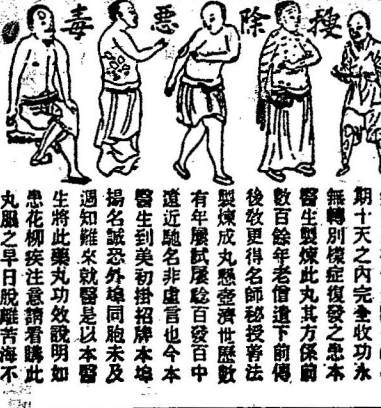 搜除惡毒
期十天之內完全收功永
無轉別樣症復發之患本
醫生製煉此丸其方係前
數百餘年老僧遺下前傳
後敎更得名師秘授善法
製煉成丸懸壺濟世歷數
有年屢試屢騐百發百中
遠近馳名非虛言也今本
醫生到美初掛招牌本埠
揚名誠恐外埠同胞未及
週知難來就醫是以本醫
生將此藥丸功效說明如
患花柳疾注意請看購此
丸服之早日脫離苦海不